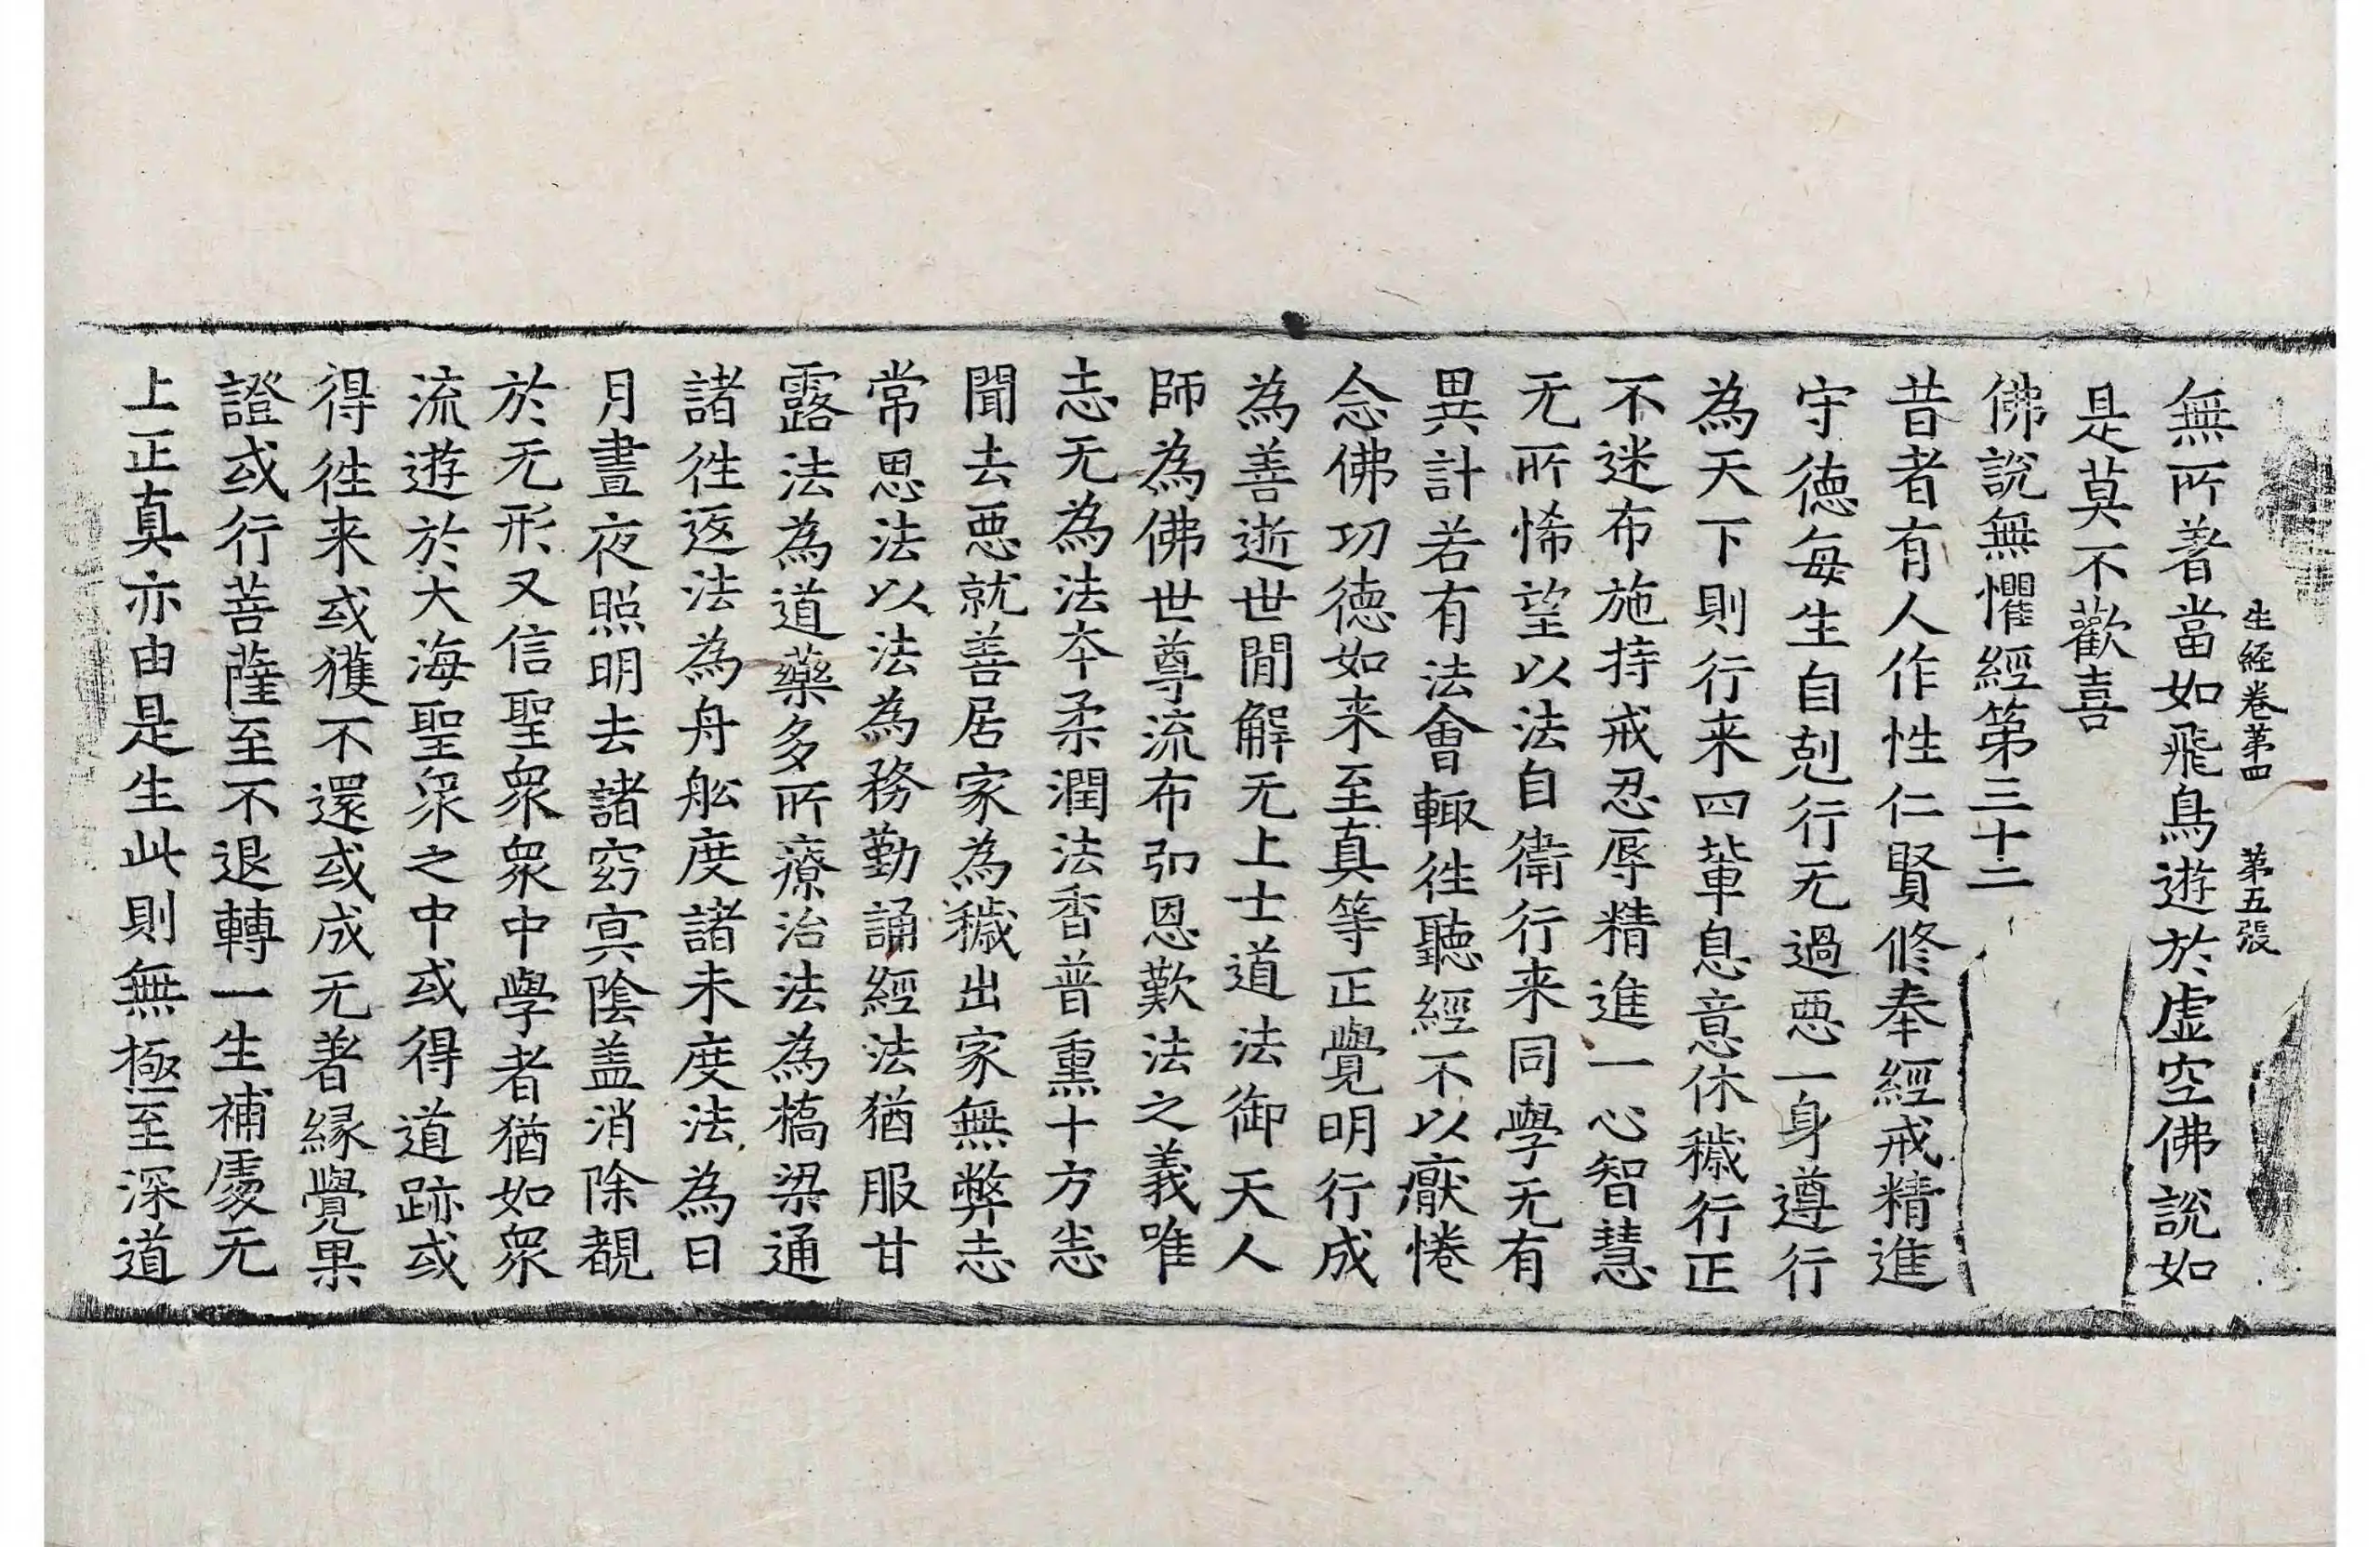 生経卷第四 第五張
無所著當如飛鳥遊於虛空佛說如
是莫不歡喜
佛說無懼經第三十二
昔者有人作性仁賢修奉經戒精進
守德每生自剋行无過惡一身遵行
為天下則行来四輩息意休穢行正
不迷布施持戒忍辱精進一心智慧
无所悕望以法自衛行来同學无有
異計若有法會輙徃聽經不以厭惓
念佛功德如来至真等正覺明行成
為善逝世間解无上士道法御天人
師為佛世尊流布弘恩歎法之義唯
志无為法本柔潤法香普熏十方恙
聞去惡就善居家為穢出家無弊志
常思法以法為務勤誦經法猶服甘
露法為道藥多所療治法為橋梁通
諸徃返法為舟舩度諸未度法為日
月晝夜照明去諸窈冥陰盖消除覩
於无形又信聖衆衆中學者猶如衆
流遊於大海聖衆之中或得道跡或
得徃来或獲不還或成无著縁覺果
證或行菩薩至不退轉一生補處无
上正真亦由是生此則無極至深道